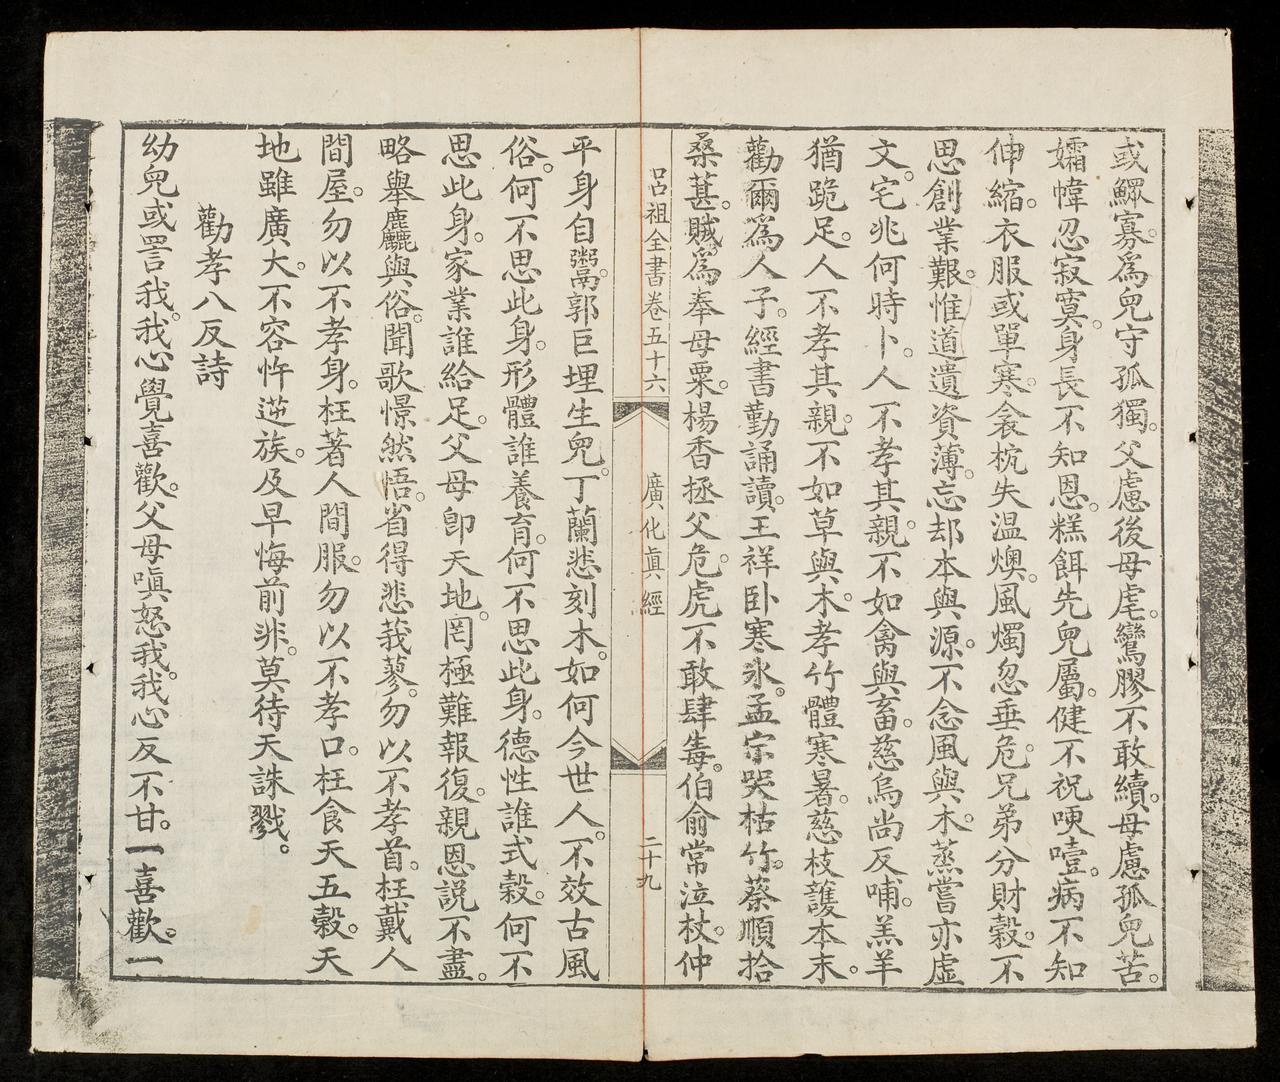 或鰥寡。爲兒守孤獨。父慮後母虐。鸞膠不敢續。母慮孤兒苦。
孀幃忍寂寞。身長不知恩。糕餌先兒屬。健不祝哽噎。病不知
伸縮。衣服或單寒。衾枕失温燠。風燭忽垂危。兄弟分財穀。不
思創業艱。惟道遺資薄。忘却本與源。不念風與木。蒸嘗亦虛
文。宅兆何時卜。人不孝其親。不如禽與畜。慈烏尚反哺。羔羊
猶跪足。人不孝其親。不如草與木。孝竹體寒暑。慈枝護本末。
勸爾爲人子。經書勤誦讀。王祥卧寒氷。孟宗哭枯竹。蔡順拾
桑葚。賊爲奉母粟。楊香拯父危。虎不敢肆毒。伯俞常泣杖。仲
呂祖全書卷五十六　廣化眞經　二十九
平身自鬻。郭巨埋生兒。丁蘭悲刻木。如何今世人。不效古風
俗。何不思此身。形體誰養育。何不思此身。德性誰式穀。何不
思此身。家業誰給足。父母卽天地。罔極難報復。親恩説不盡。
略舉麤與俗。聞歌憬然悟。省得悲莪蓼。勿以不孝首。枉戴人
間屋。勿以不孝身。枉著人間服。勿以不孝口。枉食天五穀。天
地雖廣大。不容忤逆族。及早悔前非。莫待天誅戮。
勸孝八反詩
幼兒或詈我。我心覺喜歡。父母嗔怒我。我心反不甘。一喜歡。一